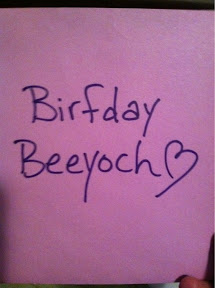 Birfday
Beeyoch♡